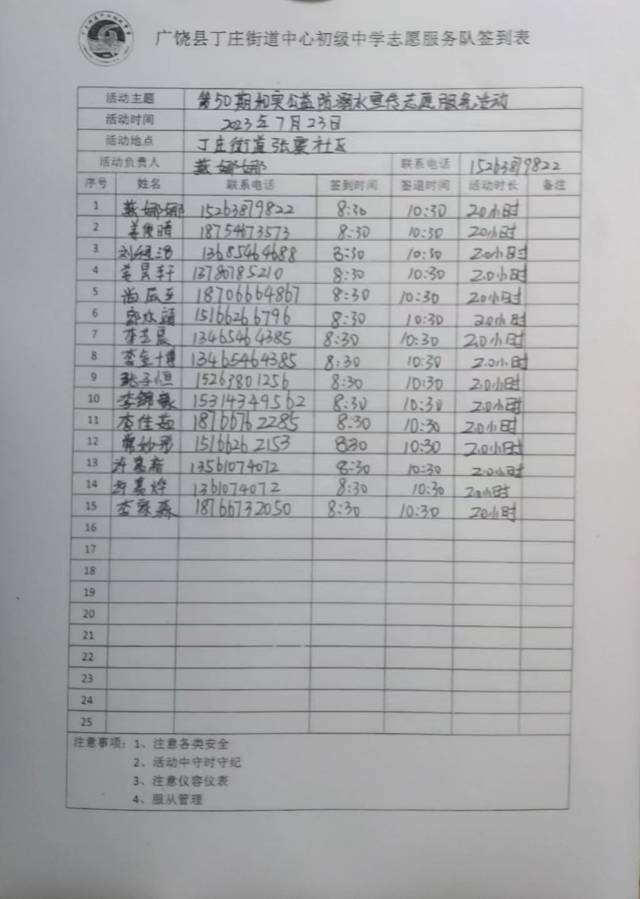 广饶县丁庄街道中心初级中学志愿服务队签到表
活动主题 第50期和实公益防溺水宣传志愿服务活动
活动时间 2023年7月23日
活动地点 丁庄街道张要社区
活动负责人 戴娜娜 联系电话 15263879822
序号 姓名 联系电话 签到时间 签退时间 活动时长 备注
1 戴娜娜 15263879822 8:30 10:30 2.0小时
2 18754673573 8:30 10:30 2.0小时
3 13685464688 8:30 10:30 2.0小时
4 姜昊轩 13780785210 8:30 10:30 2.0小时
5 尚辰 18706664867 8:30 10:30 2.0小时
6 15166266796 8:30 10:30 2.0小时
7 13465464385 8:30 10:30 2.0小时
8 李金博 13465464385 8:30 10:30 2.0小时
9 子恒 15263801256 8:30 10:30 2.0小时
10 15314349562 8:30 10:30 2.0小时
11 李佳茹 18766762285 8:30 10:30 2.0小时
12 15166262153 8:30 10:30 2.0小时
13 许嘉 13561074072 8:30 10:30 2.0小时
14 许嘉烨 1361074072 8:30 10:30 2.0小时
15 李家森 18766732050 8:30 10:30 2.0小时
16
17
18
19
20
21
22
23
24
25
注意事项：1、注意各类安全
2、活动中守时守纪
3、注意仪容仪表
4、服从管理